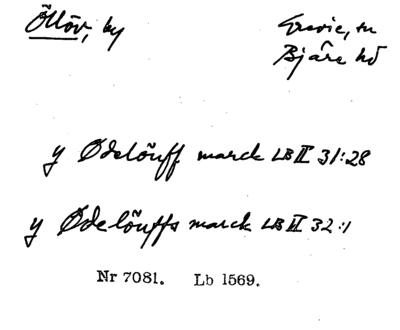 Öllöv, by
Grevie, sn
Bjäre hd
y Ødelöuff marck LB II 31:28
y Ødelöuffs marck LB II 32:1
Nr 7081. Lb 1569.